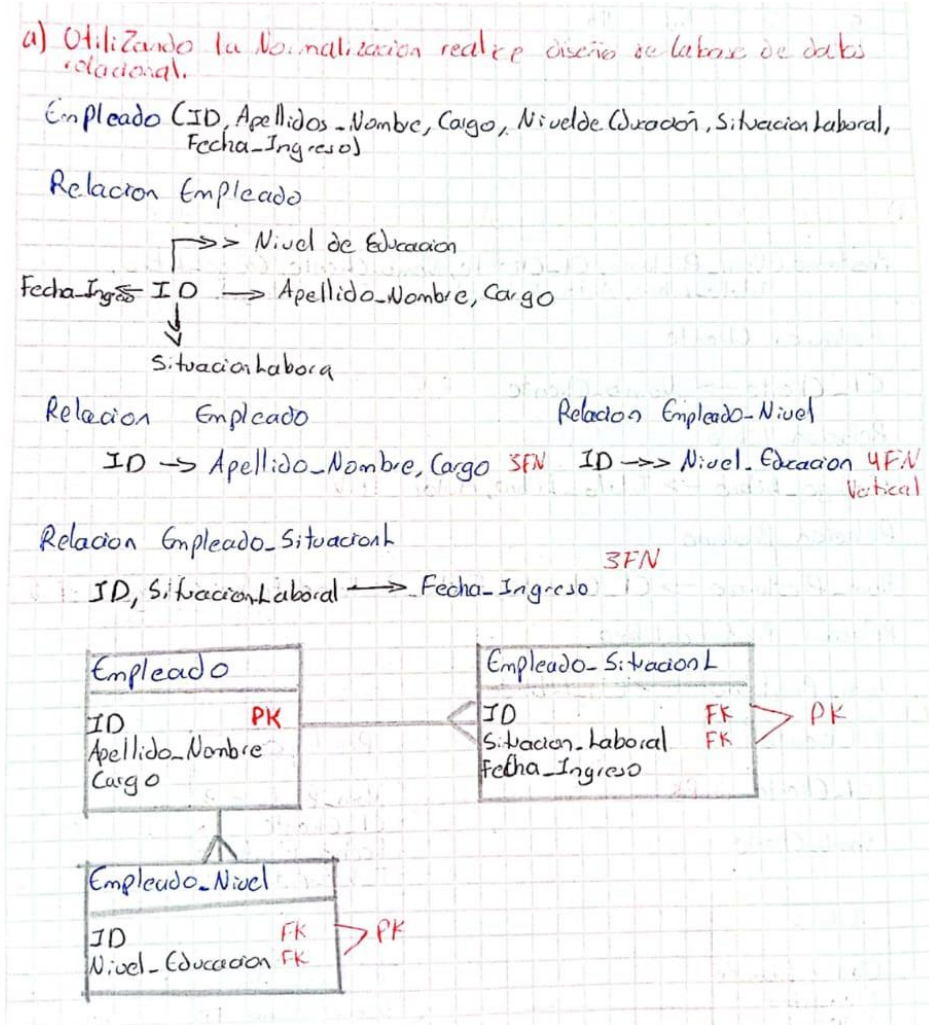 a) Utilizando la Normalizacion realice diseño de la base de datos
relacional.
Empleado (ID, Apellidos_Nombre, Cargo, Nivel de Educación, Situacion Laboral,
Fecha_Ingreso)
Relacion Empleado
->> Nivel de Educacion
Fecha_Ingreso ID -> Apellido_Nombre, Cargo
Situacion Labora
Relacion Empleado
Relacion Empleado_Nivel
ID -> Apellido_Nombre, Cargo 3FN
ID ->> Nivel_Educacion 4FN
Vertical
Relacion Empleado_SituacionL
3FN
ID, Situacion Laboral -> Fecha_Ingreso
Empleado
ID PK
Apellido_Nombre
Cargo
Empleado_SituacionL
ID FK
Situacion_Laboral FK
PK
Fecha_Ingreso
Empleado_Nivel
ID FK
Nivel_Educacion FK
PK